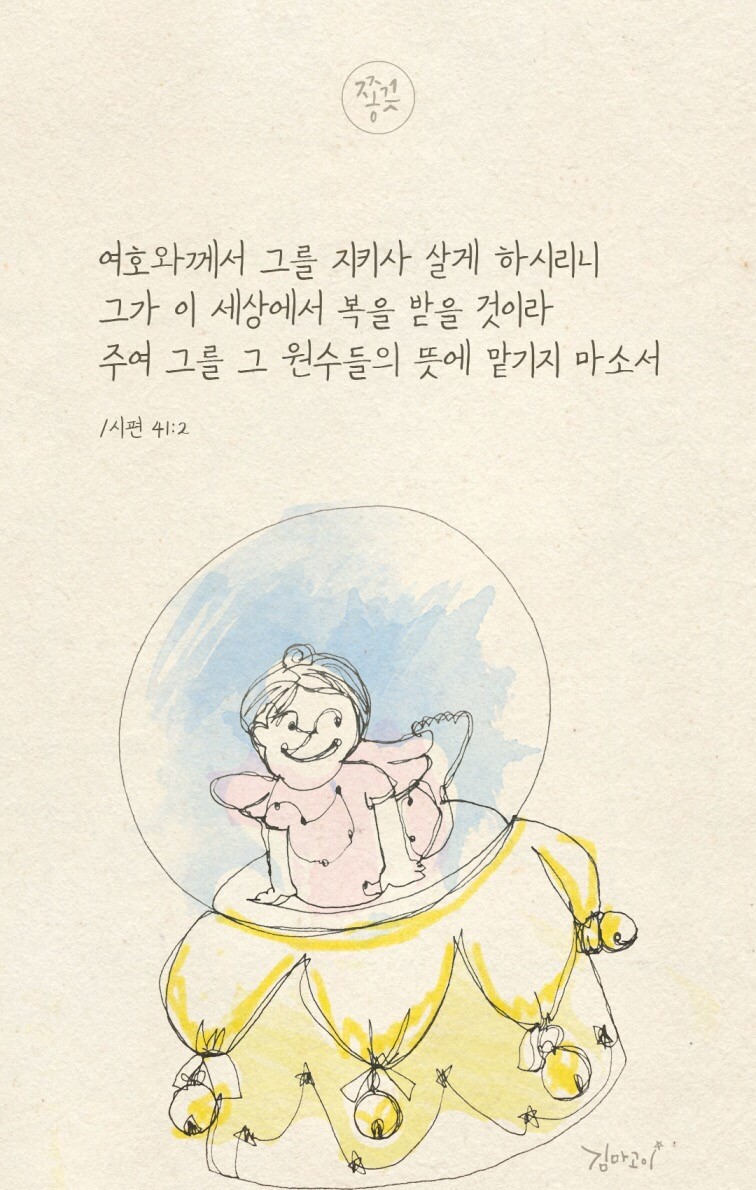 쫑긋
여호와께서 그를 지키사 살게 하시리니
그가 이 세상에서 복을 받을 것이라
주여 그를 그 원수들의 뜻에 맡기지 마소서
/시편 41:2
김마고이